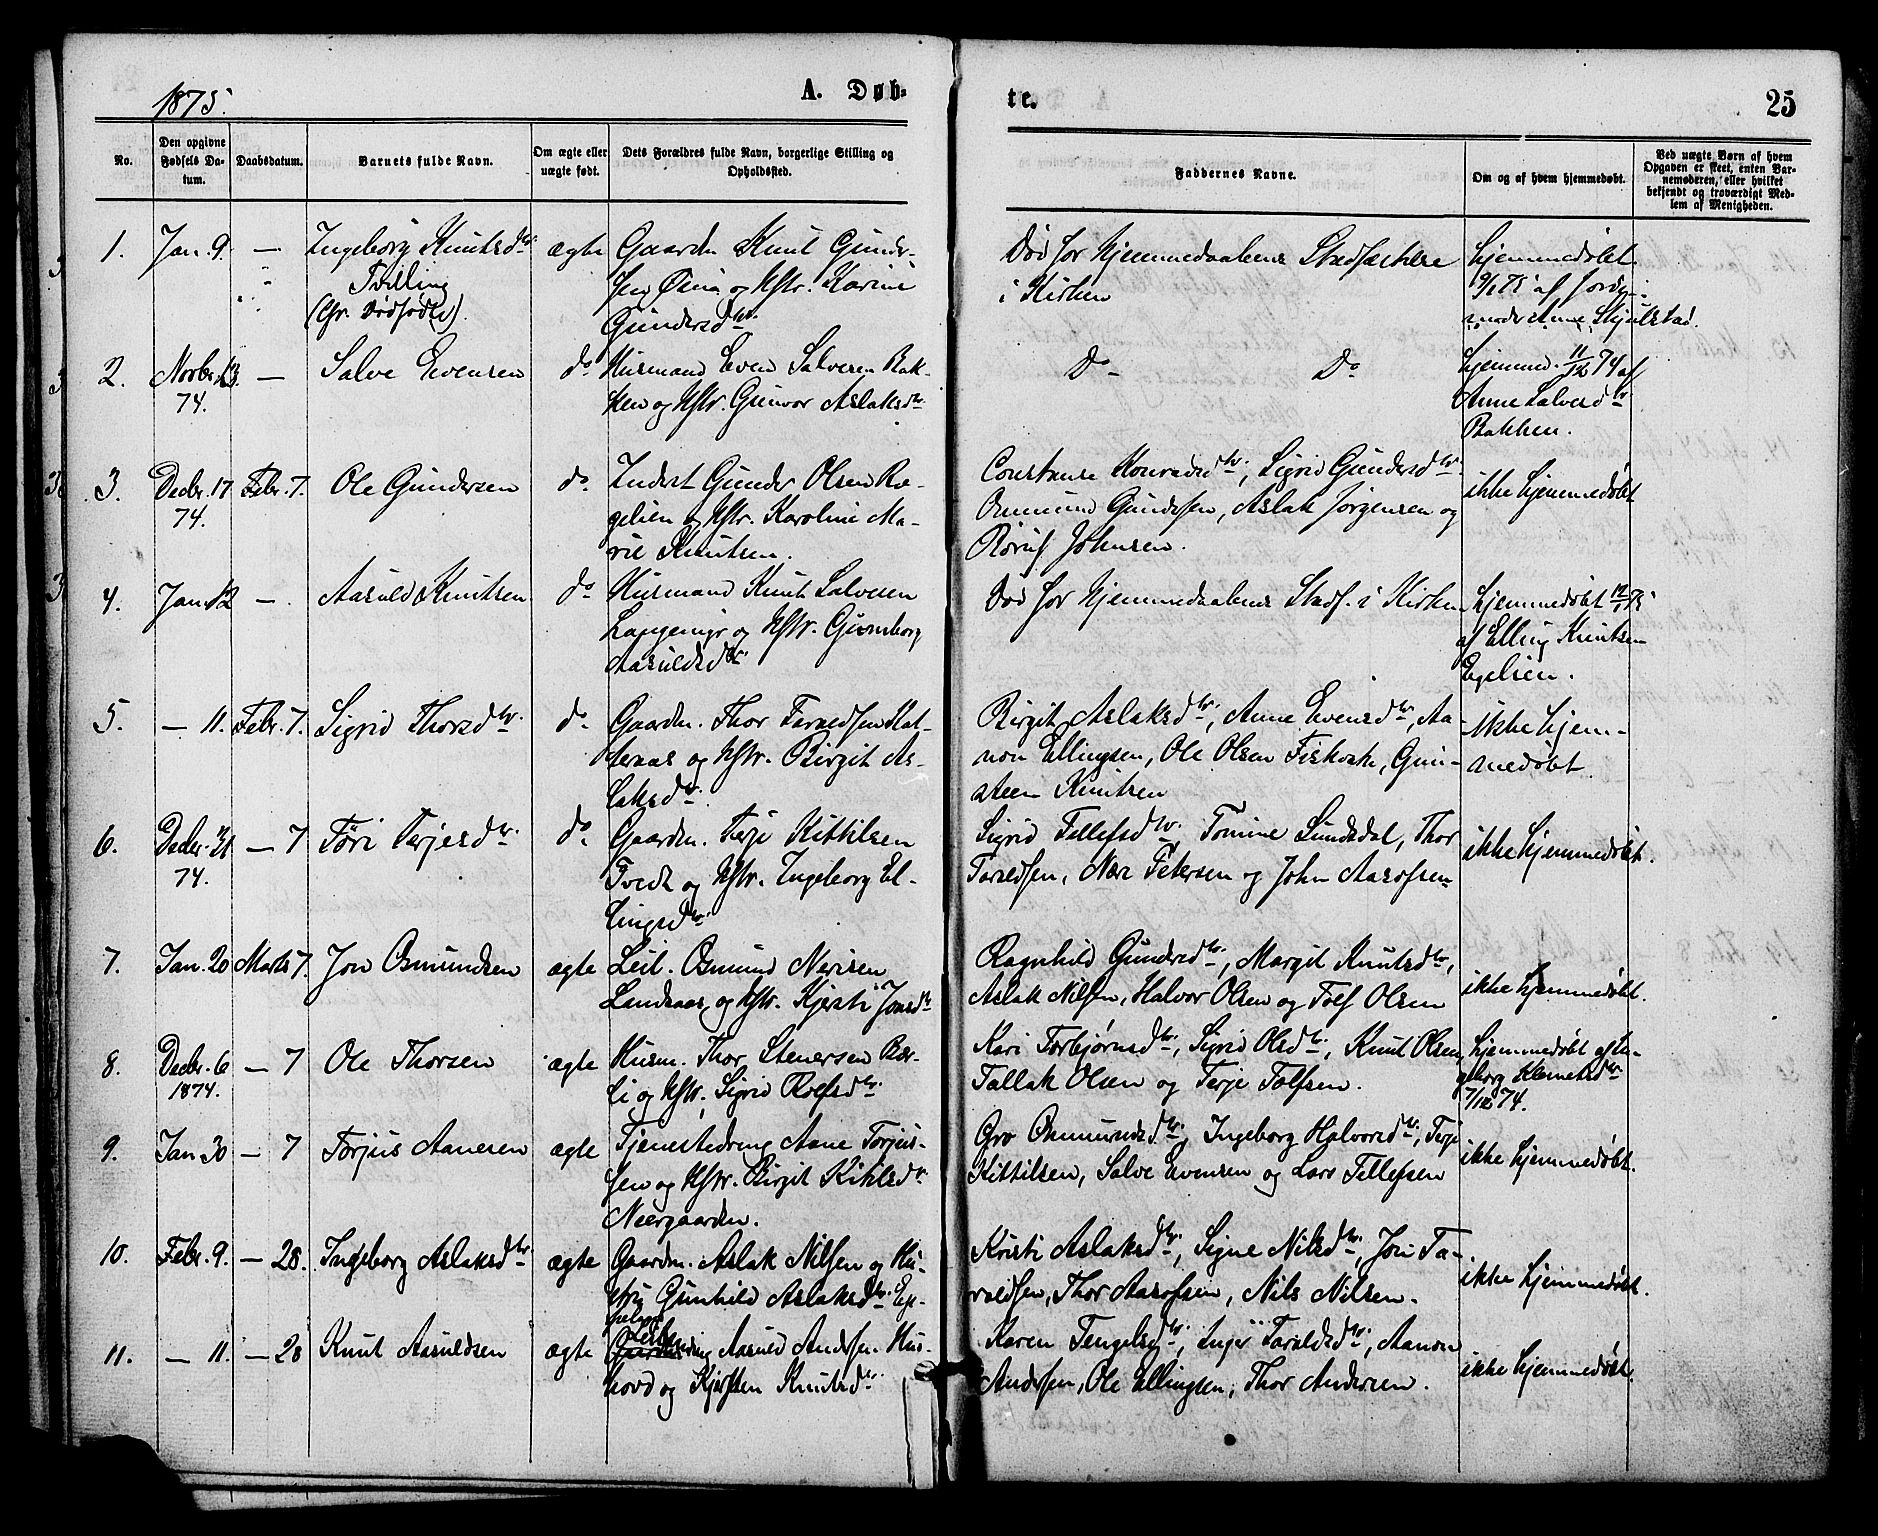 1875.
A. Døb-
te.
25
No.
Den opgivne
Fødsels Da-
tum.
Daabsdatum.
Barnets fulde Navn.
Om ægte eller
uægte født.
Dets Forældres fulde Navn, borgerlige Stilling og
Opholdssted.
Faddernes Navne.
Om og af hvem hjemmedøbt.
Ved uægte Børn af hvem
Opgaven er skeet, enten Bar-
nemoderen, eller hvilket
bekjendt og troværdigt Med-
lem af Menigheden.
1. Jan. 9. — Ingeborg Knutsdtr. ægte Gaardm. Knut Gunder-
Tvilling
sen og Hstr. Karine
(Gr. Dødfødte).
Gundersdtr.
Død før Hjemmedaabens Stadfæstelse
i Kirken
hjemmedøbt
9/1 75 af Jorde-
moder Anne Skjulstad.
2. Novbr. 13. — Salve Evensen do Husmand Even Salvesen Bak-
74.
ken og Hstr. Gunvor Aslaksdtr.
Do Do
hjemmed. 11/12 74 af
Anne Salvesdtr
Bakken.
3. Decbr. 17 Febr. 7. Ole Gundersen do Inderst Gunder Olsen
74.
og Hstr. Karoline Ma-
rie Knutsen.
Constanse Konradsdtr., Sigrid Gundersdtr.
Osmund Gundersen, Aslak Jørgensen og
Johnsen.
ikke hjemmedøbt
4. Jan. 12 — Aasuld Knutsen do Husmand Knut Salvesen
og Hstr. Gunnborg
Aasuldsdtr.
Død før Hjemmedaabens Stadf. i Kirken
hjemmedøbt 12/1 75
af Elling Knutsen
5. — 11. Febr. 7. Sigrid Thorsdtr. do Gaardm. Thor Taraldsen Kat-
teraas og Hstr. Birgit As-
laksdtr.
Birgit Aslaksdtr., Anne Evensdtr., Aa-
non Ellingsen, Ole Olsen Fiskvatn, Gun-
steen Knutsen
ikke hjem-
medøbt.
6. Decbr. 21 — 7 Tøri Terjesdtr. do Gaardm. Terje Kittilsen
74.
Tvedt og Hstr. Ingeborg El-
lingsdtr.
Sigrid Tellefsdtr., Tomine Sundsdal, Thor
Taraldsen, Neri Petersen og John Aasofsen
ikke hjemmedøbt.
7. Jan. 20 Marts 7. Jon Osmundsen ægte Leil. Osmund Nerisen
Landsaas og Hstr. Kjersti Jonsdtr
Ragnhild Gundersdtr., Margit Knutsdtr.,
Aslak Nilsen, Halvor Olsen og Tolf Olsen
ikke hjemmedøbt.
8. Decbr. 6 — 7 Ole Thorsen ægte Husm. Thor Stenersen Bær-
1874.
li og Hstr. Sigrid Rolfsdtr.
Kari Torbjørnsdtr., Sigrid Olsdtr., Knut Olsen,
Tallak Olsen og Terje Tolfsen.
hjemmedøbt af In-
geborg Klemetsdtr
7/12 74.
9. Jan. 30 — 7 Torjus Aanesen ægte Tjenestedreng Aane Torjus-
sen og Hstr. Birgit Kittilsdtr.
Neergaarden.
Gro Osmundsdtr., Ingeborg Halvorsdtr., Terje
Kittilsen, Salve Evensen og Lars Tellefsen
ikke hjemmedøbt.
10. Febr. 9. — 28. Ingeborg Aslaksdtr. ægte Gaardm. Aslak Nilsen og Hu-
stru Gunhild Aslaksdtr.
Kristi Aslaksdtr., Signe Nilsdtr., Jon Ta-
raldsen, Thor Aasofsen, Nils Nilsen.
ikke hjemmedøbt.
11. — 11. — 28 Knut Aasuldsen ægte Aasuld Andersen Hus-
hovd og Kjersten Knutsdtr.
Karen Tengelsdtr., Inger Taraldsdtr., Aanon
Andersen, Ole Ellingsen, Thor Andersen.
ikke hjemmedøbt.